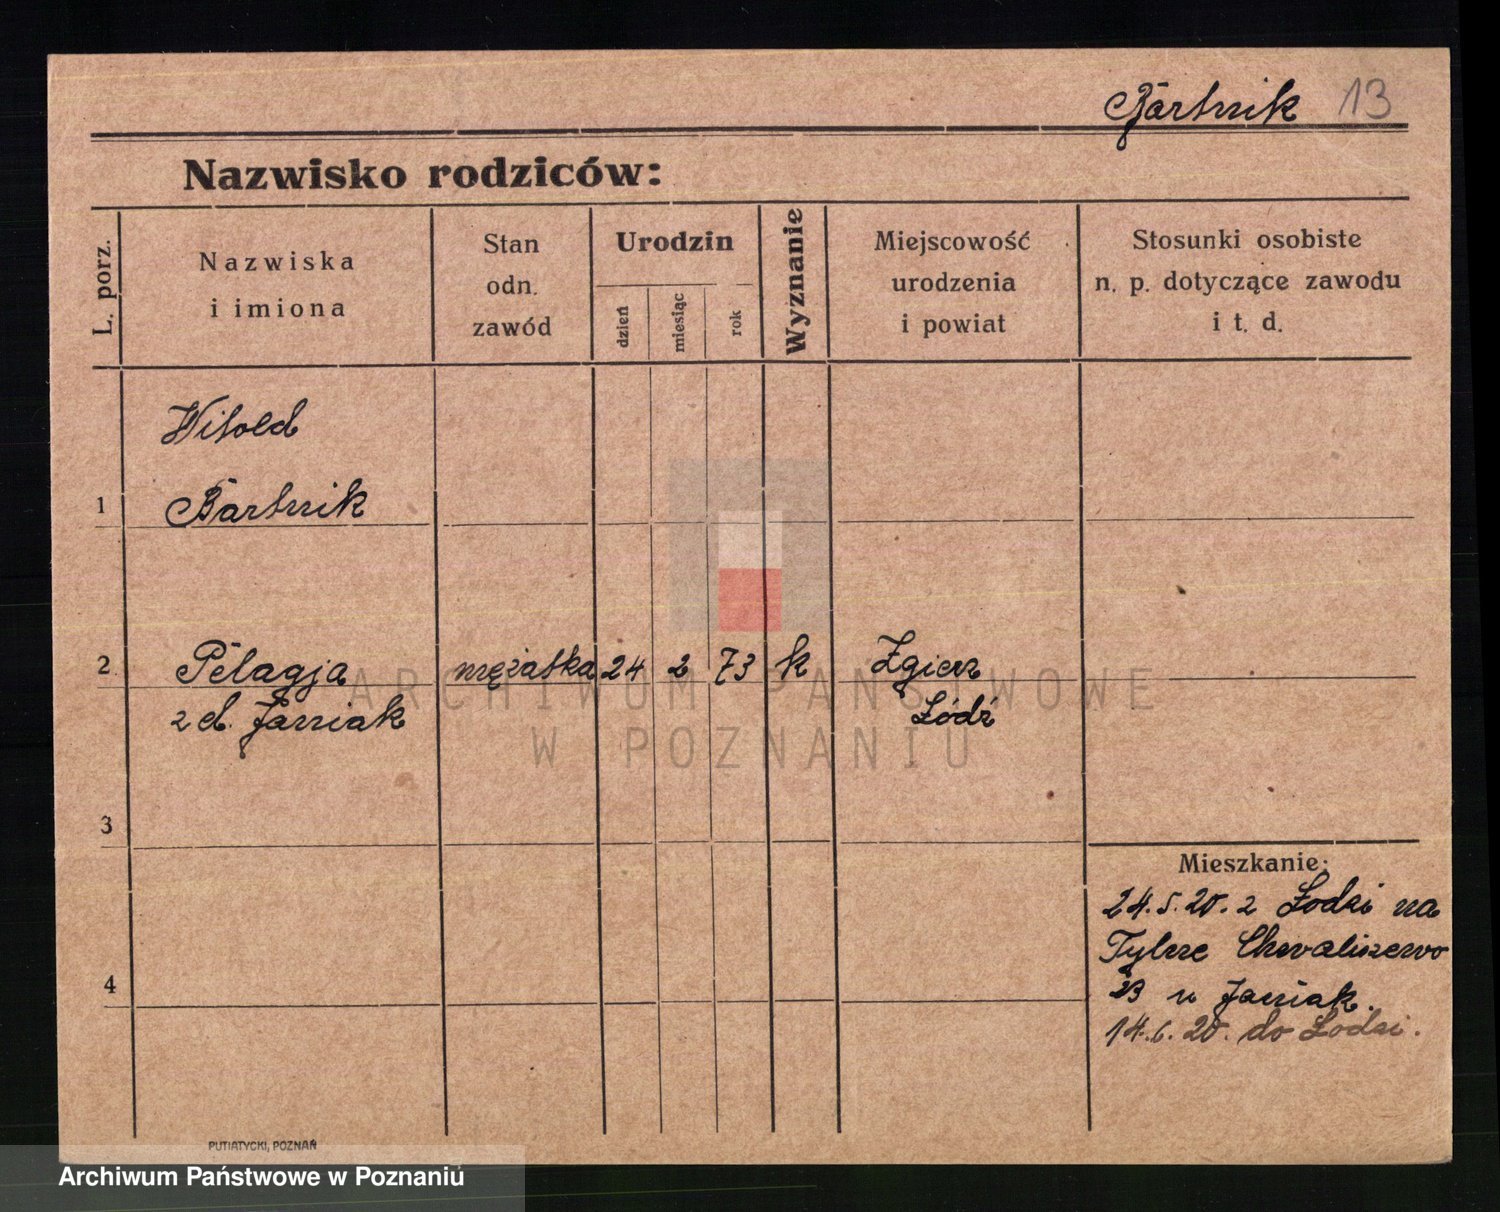 Bartnik 13
Nazwisko rodziców:
L. porz.
Nazwiska
i imiona
Stan
odn.
zawód
Urodzin
dzień
miesiąc
rok
Wyznanie
Miejscowość
urodzenia
i powiat
Stosunki osobiste
n. p. dotyczące zawodu
i t. d.
Witold
1 Bartnik
2 Pelagja mężatka 24 2 73 k Zgierz
z d. Janiak Łódź
3
Mieszkanie:
24.5.20. z Łodzi na
Tylne Chwaliszewo
23 u Janiak.
4
14.6.20. do Łodzi.
PUTIATYCKI, POZNAŃ
ARCHIWUM PAŃSTWOWE
W POZNANIU
Archiwum Państwowe w Poznaniu